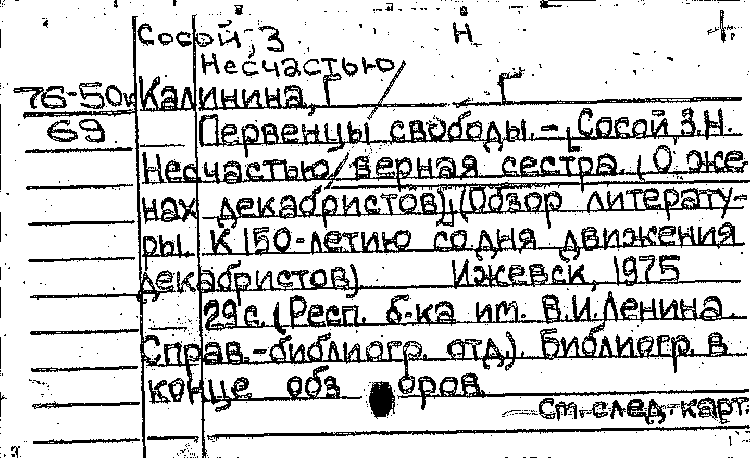 Сосой, З Н
Несчастью
76-50к Калинина, Г Г
69 Первенцы свободы. – Сосой З.Н.
Несчастью верная сестра. (О же-
нах декабристов). (Обзор литерату-
ры. К 150-летию со дня движения
декабристов) Ижевск, 1975
29 с. (Респ. б-ка им. В.И.Ленина.
Справ.-библиогр. отд.). Библиогр. в
конце обз оров
См. след. карт.